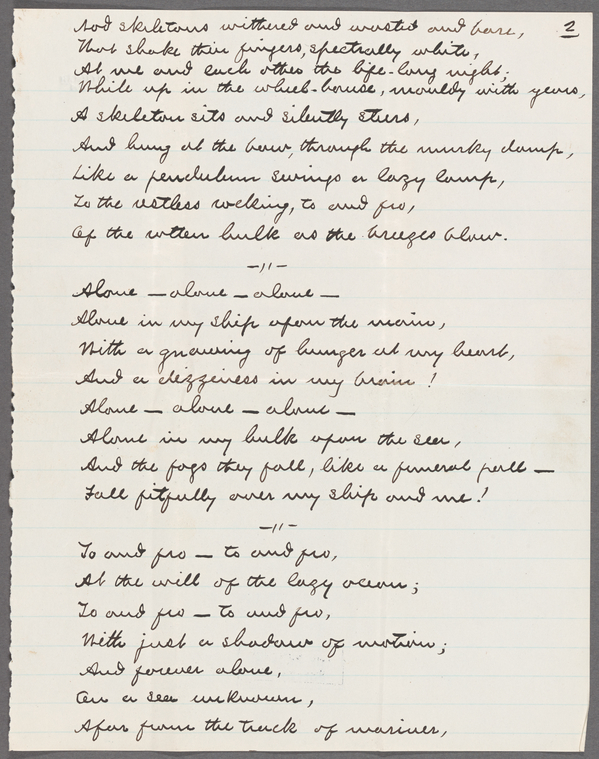 2
And skeletons withered and wasted and bare,
That shake thin fingers, spectrally white,
At me and each other the life-long night;
While up in the wheel-house, mouldy with years,
A skeleton sits and silently steers,
And hung at the bow, through the murky damp,
Like a pendulum swings a lazy lamp,
To the restless rocking, to and fro,
Of the rotten hulk as the breezes blow.
—"—
Alone — alone — alone —
Alone in my ship upon the main,
With a gnawing of hunger at my heart,
And a dizziness in my brain!
Alone — alone — alone —
Alone in my hulk upon the sea,
And the fogs they fall, like a funeral pall —
Fall fitfully over my ship and me!
—"—
To and fro — to and fro,
At the will of the lazy ocean;
To and fro — to and fro,
With just a shadow of motion;
And forever alone,
On a sea unknown,
Afar from the track of mariner,